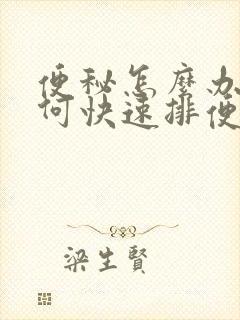 便秘怎麼办
何快速排便
梁生賢